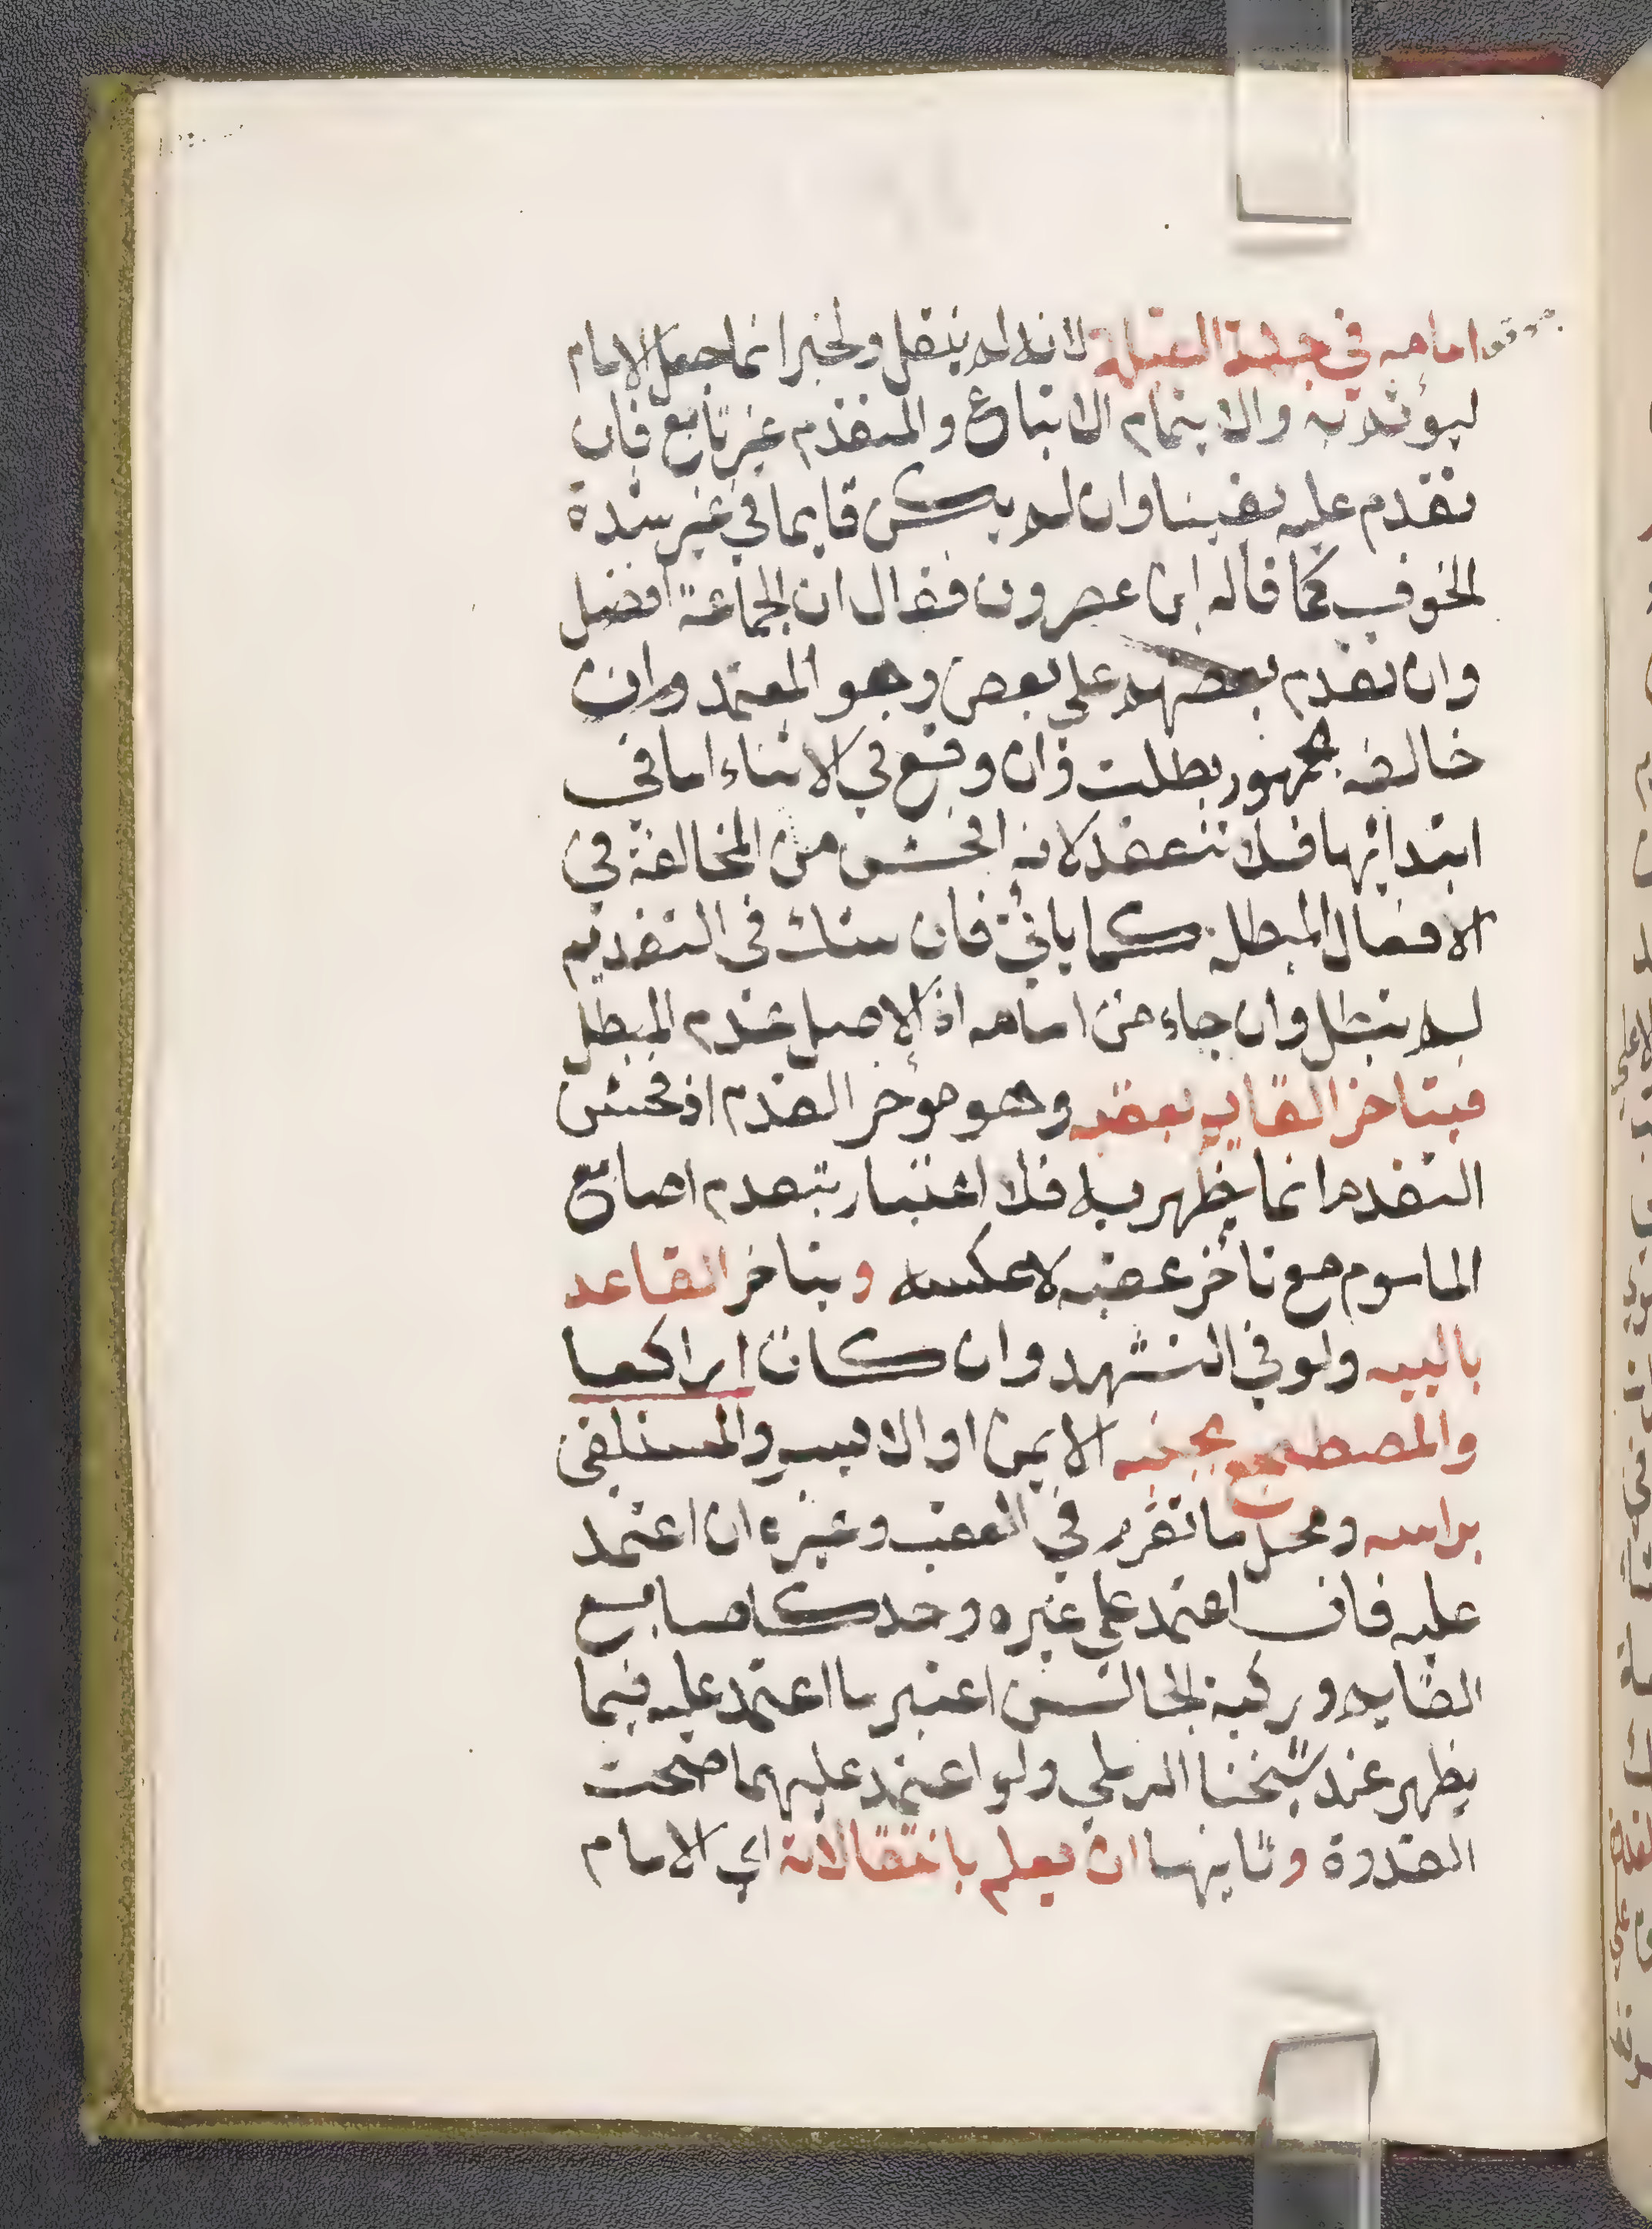 امامه في جهة القبلة لانه لم ينقل ولخبر انما جعل الامام
ليؤتم به والايتمام الاتباع والمتقدم غير تابع فان
تقدم عليه يقينا وان لم يكن قايما في غير شدة
الخوف كما قاله ابن عصرون فقال ان الجماعة افضل
وان تقدم بعضهم على بعض وهو المعتمد وان
خالفه الجمهور بطلت وان وقع في الاثناء اما في
ابتدائها فلا تنعقد لانه افحش من المخالفة في
الافعال المبطلة كما ياتي فان شك في التقديم
لم تبطل وان جاء من امامه اذ الاصل عدم المبطل
فيتاخر القايم بعقبه وهو مؤخر القدم اذ فحش
التقدم انما يظهر به فلا اعتبار بتقدم اصابع
الماموم مع تأخر عقبه لا عكسه ويتاخر القاعد
بالييه ولو في التشهد وان كان راكعا
والمضطجع بجنبه الايمن او الايسر والمستلقي
براسه ومحل ما تقرر في العقب وغيره ان اعتمد
عليه فان اعتمد على غيره وحده كاصابع
القايم وركبة الجالس اعتبر ما اعتمد عليه فيما
يظهر عند شيخنا الرملي ولو اعتمد عليهما صحت
القدوة وثانيها ان يعلم بانتقالاته اي الامام